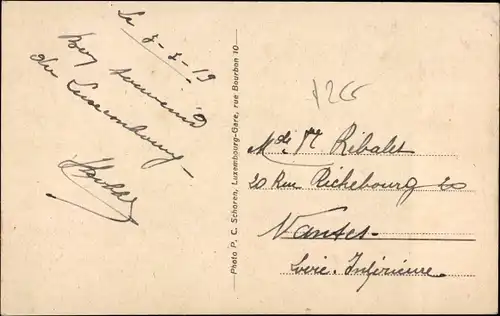 Le 3-3-19
Bon souvenir
du Luxembourg
Photo P. C. Schoren, Luxembourg-Gare, rue Bourbon 10
Ribalet
20 Rue Richebourg 20
Nantes-
Loire-Inférieure